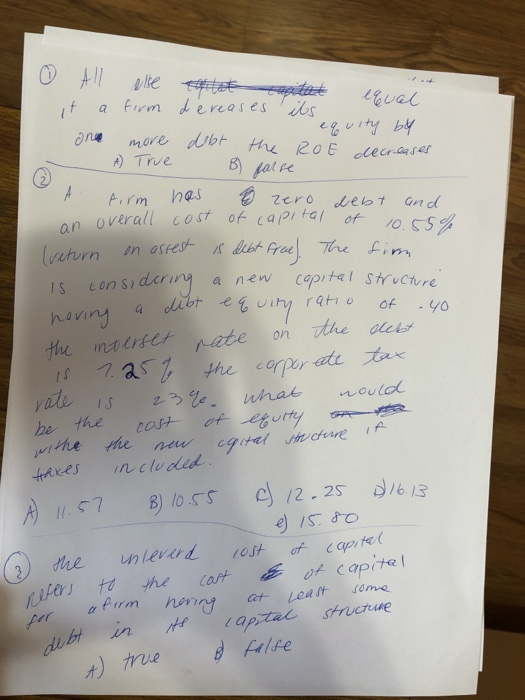 ① All else equal
if a firm dereases its equity by
one more debt the ROE decreases
A) True B) false
② A firm has zero debt and
an overall cost of capital of 10.55%
(return on assest is debt free). The firm
is considering a new capital structure
having a debt equity ratio of .40
the interset rate on the debt
is 7.25% the corporate tax
rate is 23%. what would
be the cost of equity
withe the new capital structure if
taxes included.
A) 11.57 B) 10.55 C) 12.25 D) 16.13
e) 15.80
③ the unleverd cost of capital
refers to the cost of capital
for a firm having at least some
debt in its capital structure
A) true B) false